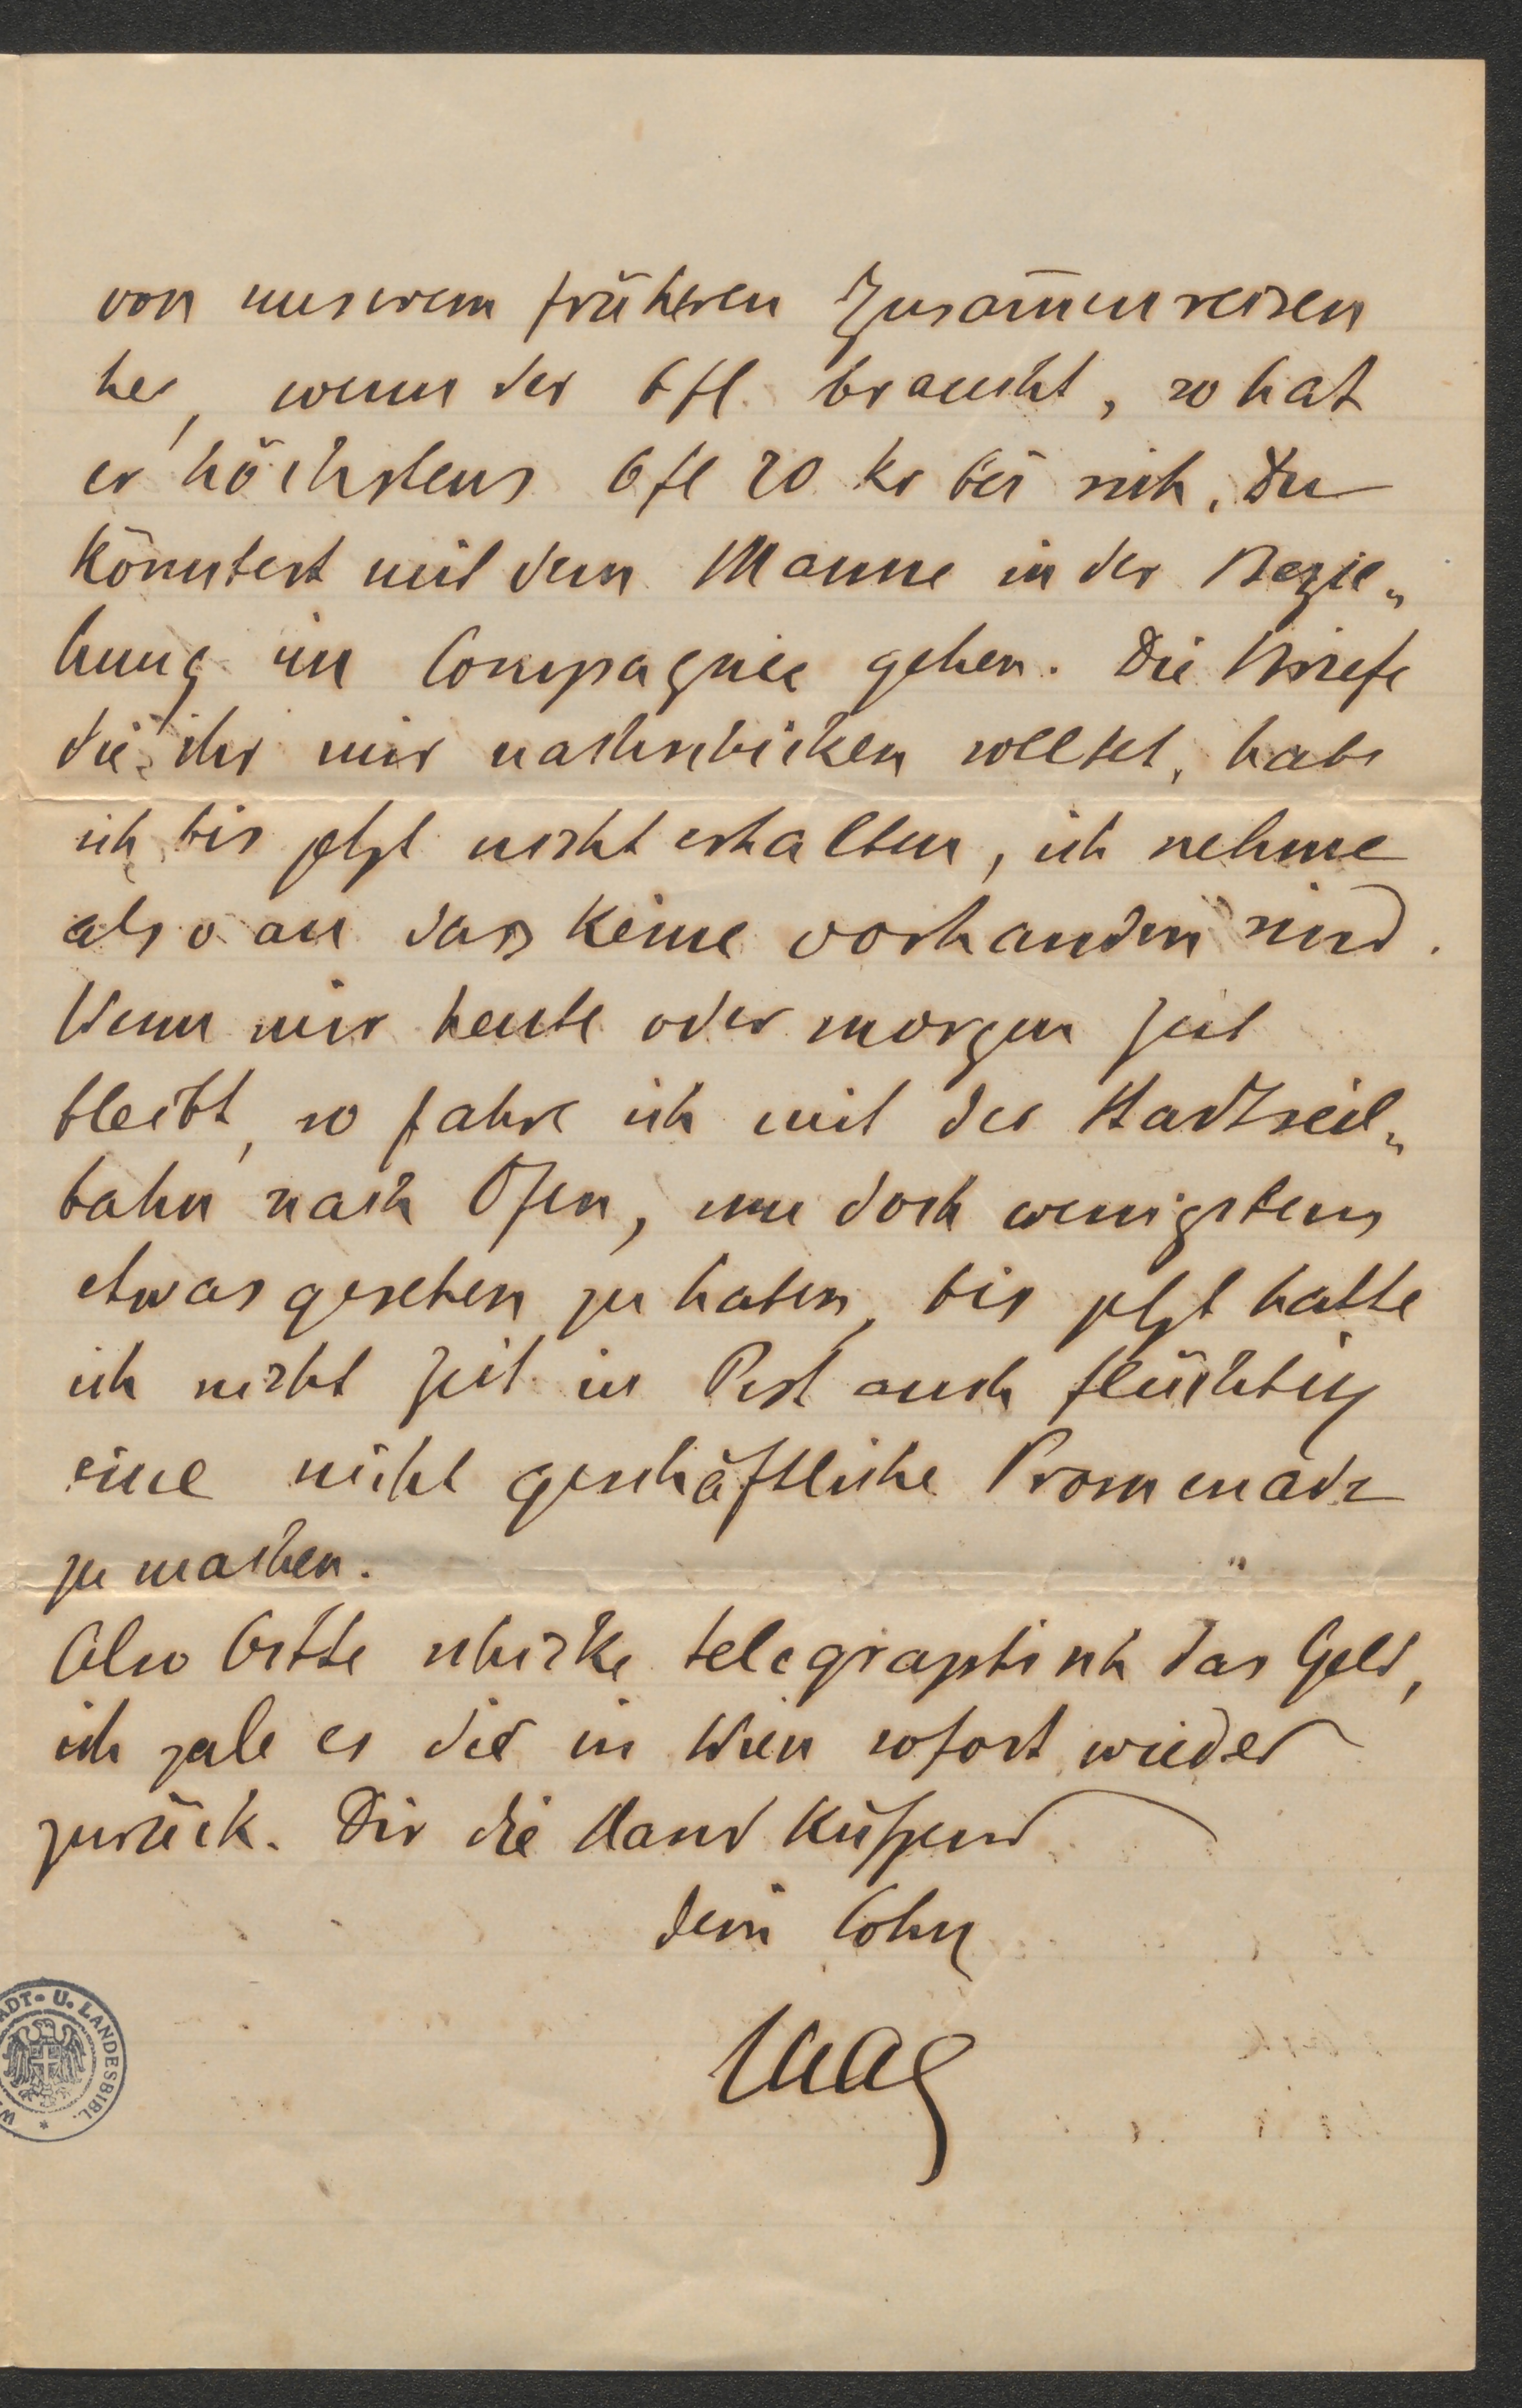 von unserem früheren Zusam̅enreisen
her, wenn der 6 fl. braucht, so hat
er höchstens 6 fl 20 kr bei sich. Du
könntest mit dem Manne in der Bezie„
hung in Compagnie gehen. Die Briefe
die ihr mir nachschicken wolltet, habe
ich bis jetzt nicht erhalten, ich nehme
also an dass keine vorhanden sind.
Wenn mir heute oder morgen Zeit
bleibt, so fahre ich mit der Stadtseil„
bahn nach Ofen, um doch wenigstens
etwas gesehen zu haben, bis jetzt hatte
ich nicht Zeit in Pest auch flüchtig
eine nicht geschäftliche Promenade
zu machen.
Also bitte schicke telegraphisch das Geld,
ich zale es dir in Wien sofort wieder
zurück. Dir die Hand küssend
dein Sohn
ADT- U. LANDESBIBL. * W